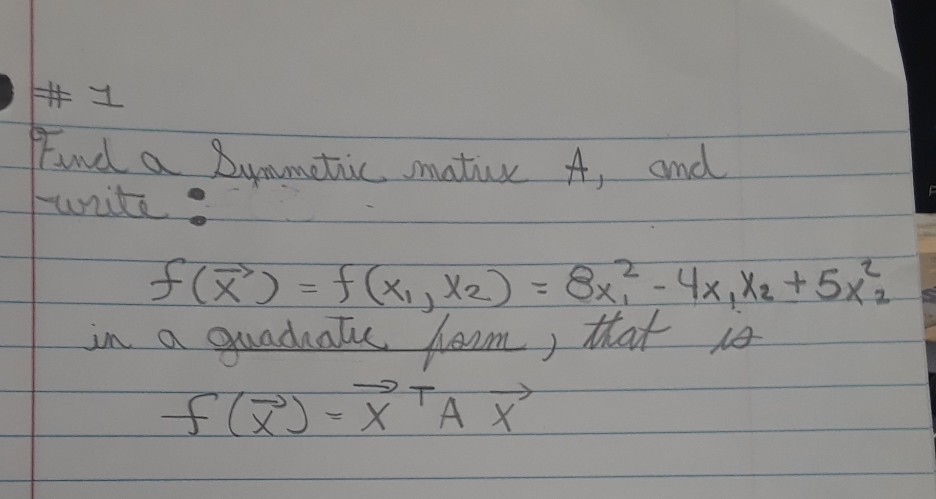 # 1
Find a Symmetric matrix A, and
write :
f(x⃗) = f(x₁, x₂) = 8x₁² - 4x₁x₂ + 5x₂²
in a quadratic form, that is
f(x⃗) = x⃗ᵀ A x⃗